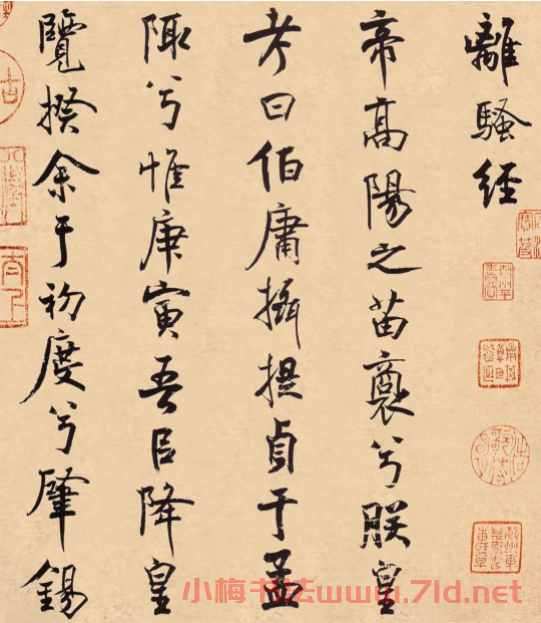 離騷經
帝高陽之苗裔兮朕皇
考曰伯庸攝提貞于孟
陬兮惟庚寅吾㠯降皇
覽揆余于初度兮肇錫
小梅书法www.7ld.net